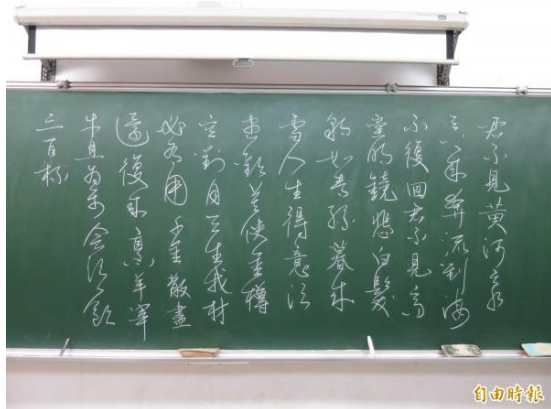 君不見黃河之水
天上來奔流到海
不復回君不見高
堂明鏡悲白髮
朝如青絲暮成
雪人生得意須
盡歡莫使金樽
空對月天生我材
必有用千金散盡
還復來烹羊宰
牛且為樂會須一飲
三百杯
自由時報